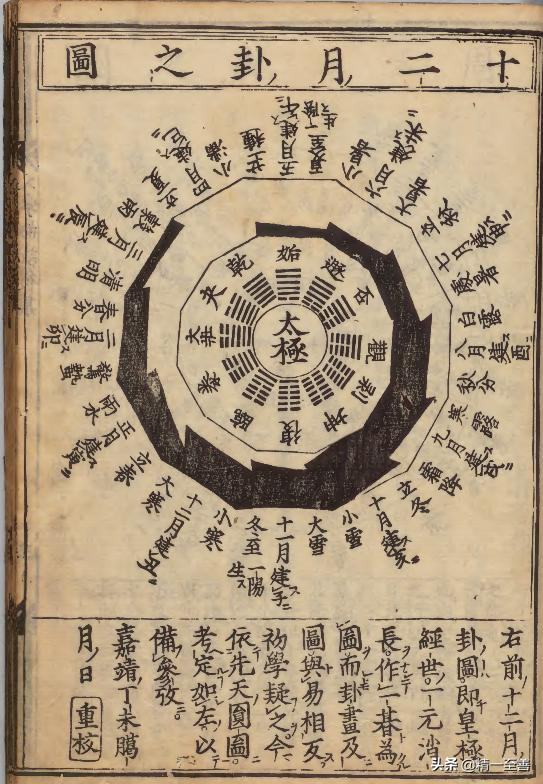 十二月卦之圖
五月建午
夏至一陰生
小暑
六月建未
大暑
立秋
七月建申
處暑
白露
八月建酉
秋分
寒露
九月建戌
霜降
立冬
十月建亥
小雪
大雪
十一月建子
冬至一陽生
小寒
十二月建丑
大寒
立春
正月建寅
雨水
驚蟄
二月建卯
春分
清明
三月建辰
穀雨
立夏
四月建巳
小滿
芒種
姤
遯
否
觀
剥
坤
復
臨
泰
大壯
夬
乾
太極
右前十二月
卦圖即皇極
經世一元消
長作二碁為
圖而卦畫及
圖與易相反
初學疑之今
依先天圓圖
考定如左以
備參攷
嘉靖丁未臈
月日 重校
头条 @精一至善